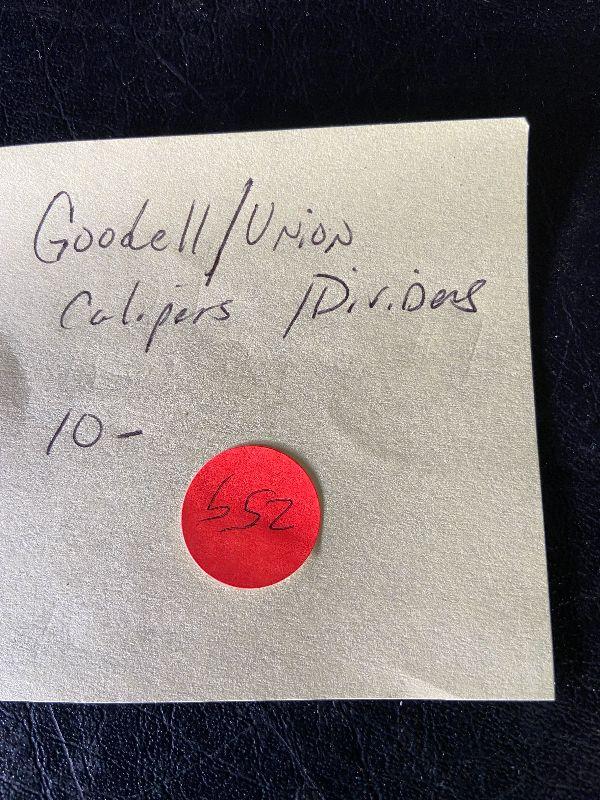 Goodell/Union
Calipers /Dividers
10-